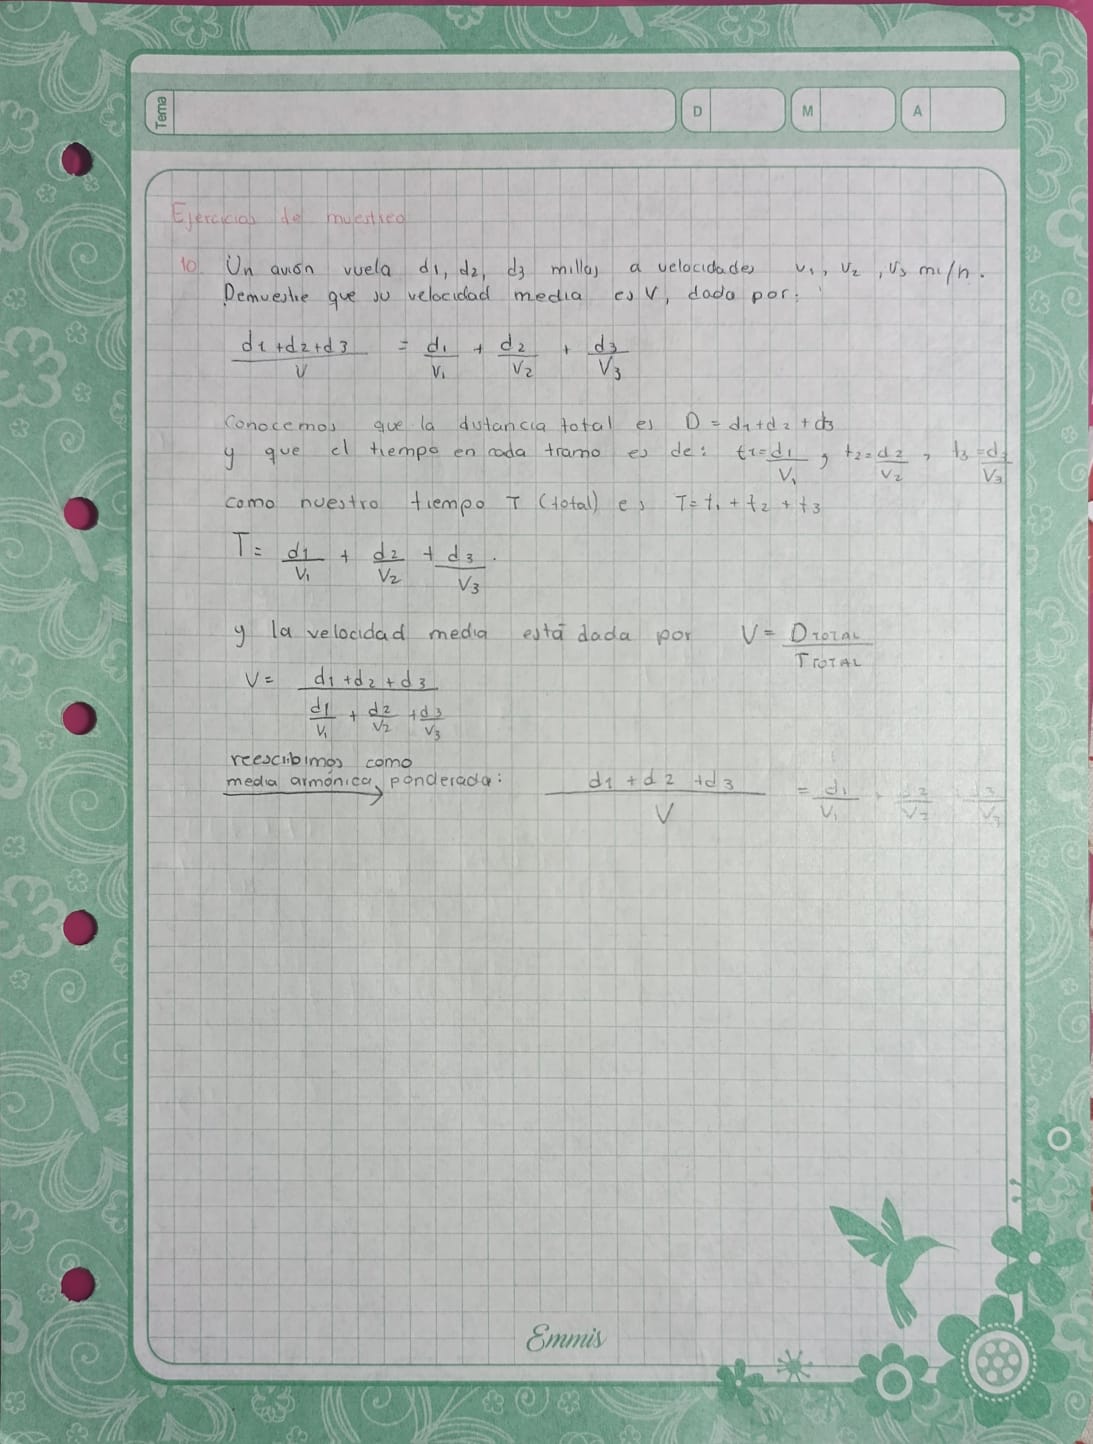 Tema
D
M
A
Ejercicios de muestreo
10. Un avión vuela d1, d2, d3 millas a velocidades v1, v2, v3 mi/h.
Demuestre que su velocidad media es V, dada por:
d1+d2+d3 / V = d1/V1 + d2/V2 + d3/V3
Conocemos que la distancia total es D = d1+d2+d3
y que el tiempo en cada tramo es de: t1=d1/V1, t2=d2/V2, t3=d3/V3
como nuestro tiempo T (total) es T=t1+t2+t3
T= d1/V1 + d2/V2 + d3/V3.
y la velocidad media está dada por V= DTOTAL/TTOTAL
V= d1+d2+d3 / d1/V1 + d2/V2 + d3/V3
reescribimos como
media armónica ponderada: d1+d2+d3 / V = d1/V1 + d2/V2 + d3/V3
Emmis